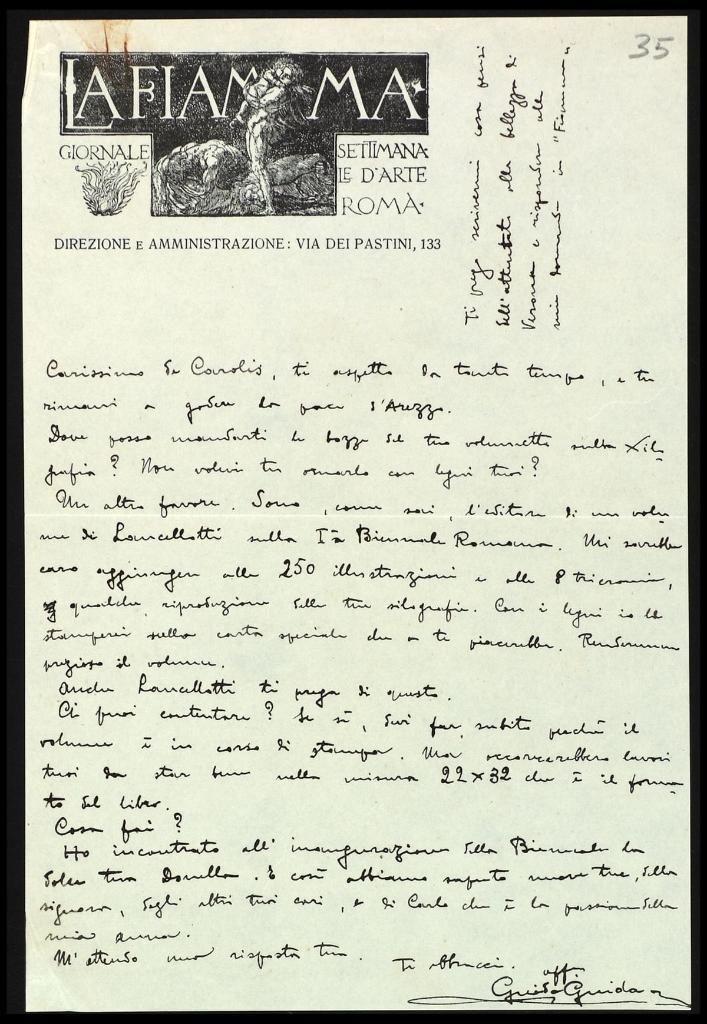 35
LA FIAMMA
GIORNALE SETTIMANA
LE D'ARTE
ROMA
DIREZIONE E AMMINISTRAZIONE: VIA DEI PASTINI, 133
Ti prego scrivermi cosa pensi
dell'attentato alla bellezza di
Verona e rispondere alla
mia domanda in "Fiamma"
Carissimo de Carolis, ti aspetto da tanto tempo, e tu
rimani a godere la pace d'Arezzo.
Dove posso mandarti le bozze del tuo volumetto sulla Xilo-
grafia? Non volevi tu ornarlo con legni tuoi?
Un altro favore. Sono, come sai, l'editore di un volu-
me di Lancellotti sulla Iª Biennale Romana. Mi sarebbe
caro aggiungere alle 250 illustrazioni e alle 8 tricromie,
qualche riproduzione delle tue silografie. Con i legni io le
stamperei sulla carta speciale che a te piacerebbe. Renderemmo
prezioso il volume.
Anche Lancellotti ti prega di questo.
Ci puoi contentare? Se sì, devi far subito perchè il
volume è in corso di stampa. Ma occorrerebbero lavori
tuoi da star bene nella misura 22x32 che è il forma-
to del libro.
Cosa fai?
Ho incontrato all'inaugurazione della Biennale la
dolce tua Donella. E così abbiamo saputo nuove tue, della
signora, degli altri tuoi cari, e di Carlo che è la passione della
mia
M'attendo una risposta tua. Ti abbracci. aff.
Guido Guida